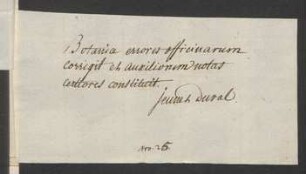 Botanica errores officinarum
corrigit et auxiliorum notas
certiores constituit.
Duval
Nro. 26